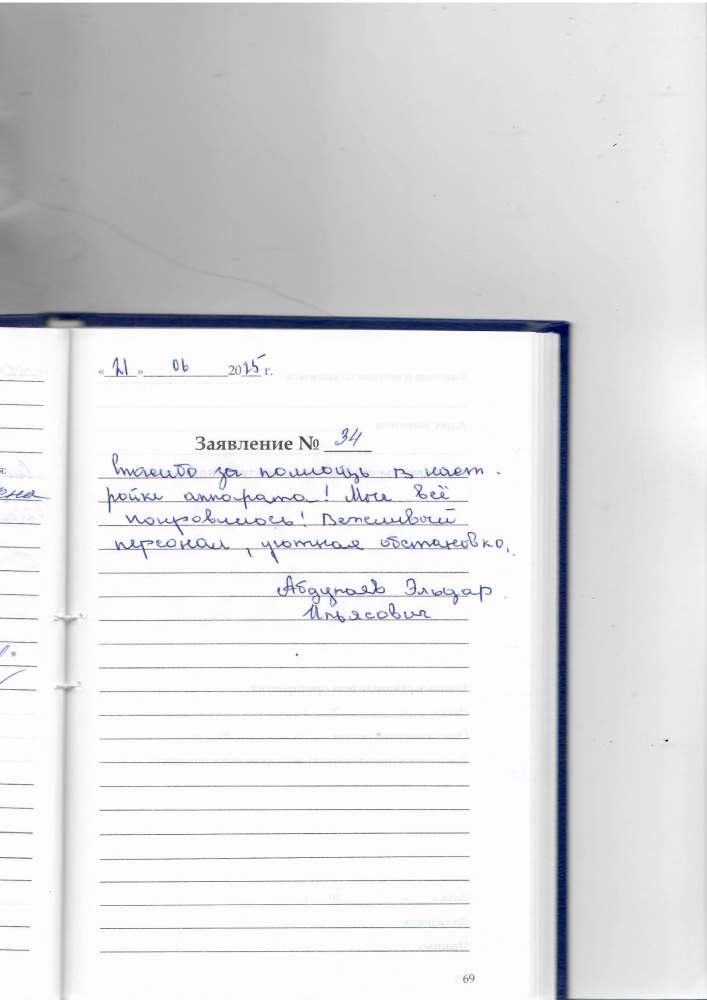 «21» 06 2025 г.
Заявление № 34
Спасибо за помощь в наст-
ройке аппарата! Мне всё
понравилось! Вежливый
персонал, уютная обстановка.
Эльдар
Ильясович
69